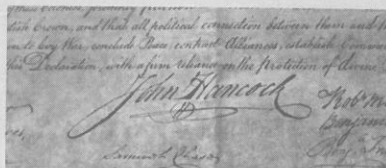 British Crown, and that all political connection between them and the
to levy War, conclude Peace, contract Alliances, establish Commerce
this Declaration, with a firm reliance on the Protection of divine
John Hancock
Robt M
Benjamin
Samuel Chase
Benj. Fr